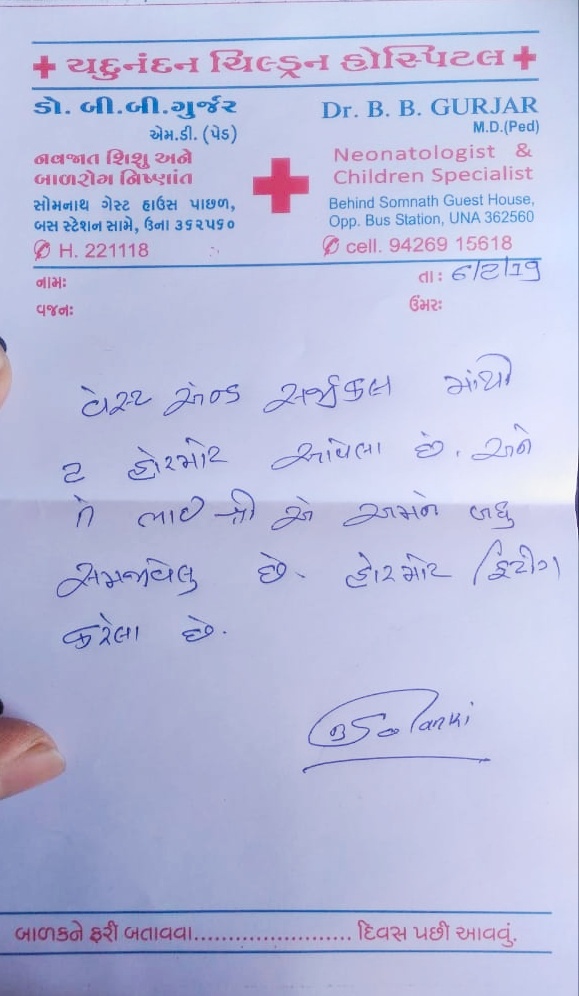 યદુનંદન ચિલ્ડ્રન હોસ્પિટલ
ડો. બી.બી.ગુર્જર
એમ.ડી. (પેડ)
નવજાત શિશુ અને
બાળરોગ નિષ્ણાંત
સોમનાથ ગેસ્ટ હાઉસ પાછળ,
બસ સ્ટેશન સામે, ઉના ૩૬૨૫૬૦
H. 221118
Dr. B. B. GURJAR
M.D.(Ped)
Neonatologist &
Children Specialist
Behind Somnath Guest House,
Opp. Bus Station, UNA 362560
cell. 94269 15618
નામઃ
તા : ૬/૨/19
વજનઃ
ઉંમરઃ
વેસ્ટ એન્ડ સર્જીકલ માંથી
૨ હોરમોર આવેલા છે. અને
તે ભાઈ શ્રી એ અમને બધુ
સમજાવેલુ છે. હોરમોર ફિટીંગ
કરેલા છે.
Solanki
બાળકને ફરી બતાવવા....................... દિવસ પછી આવવું.